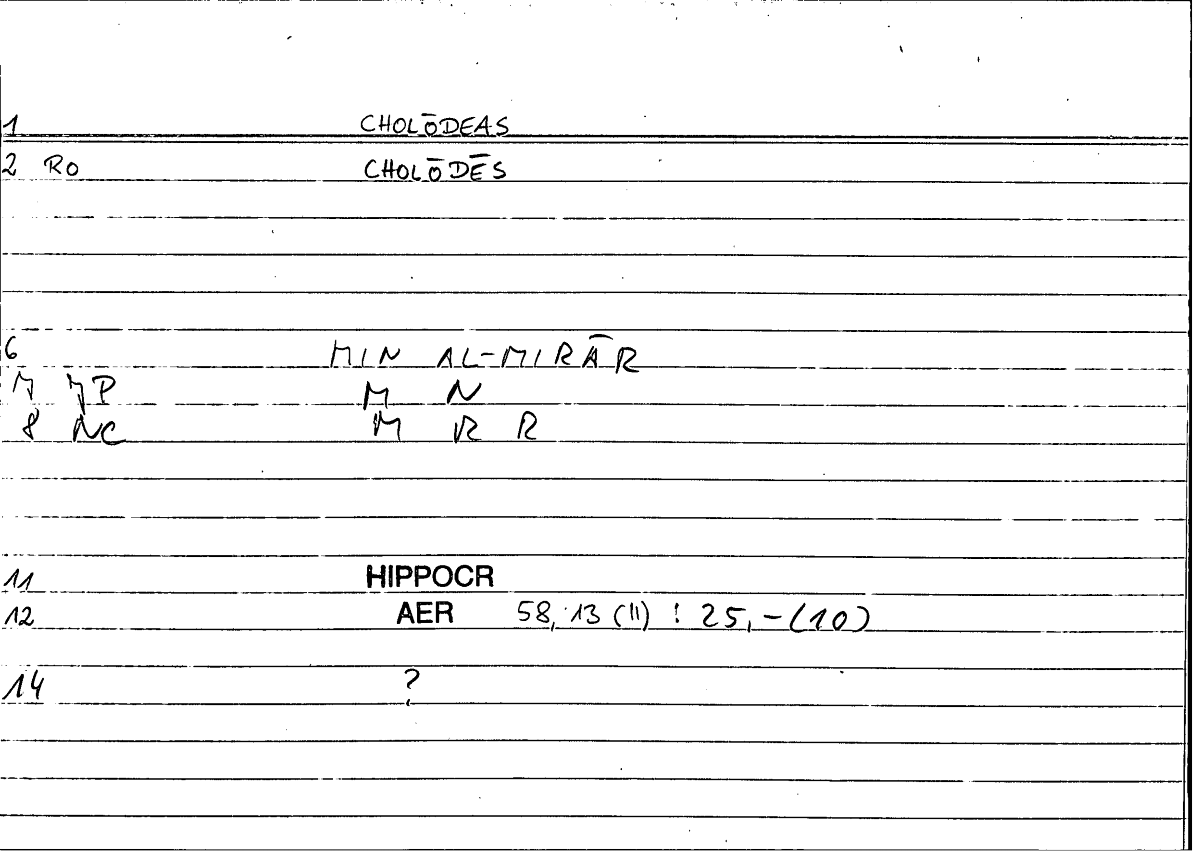 1 CHOLŌDEAS
2 RO CHOLŌDĒS
6 MIN AL-MIRĀR
M N
8 NC M R R
11 HIPPOCR
12 AER 58, 13 (11) : 25, - (10)
14 ?